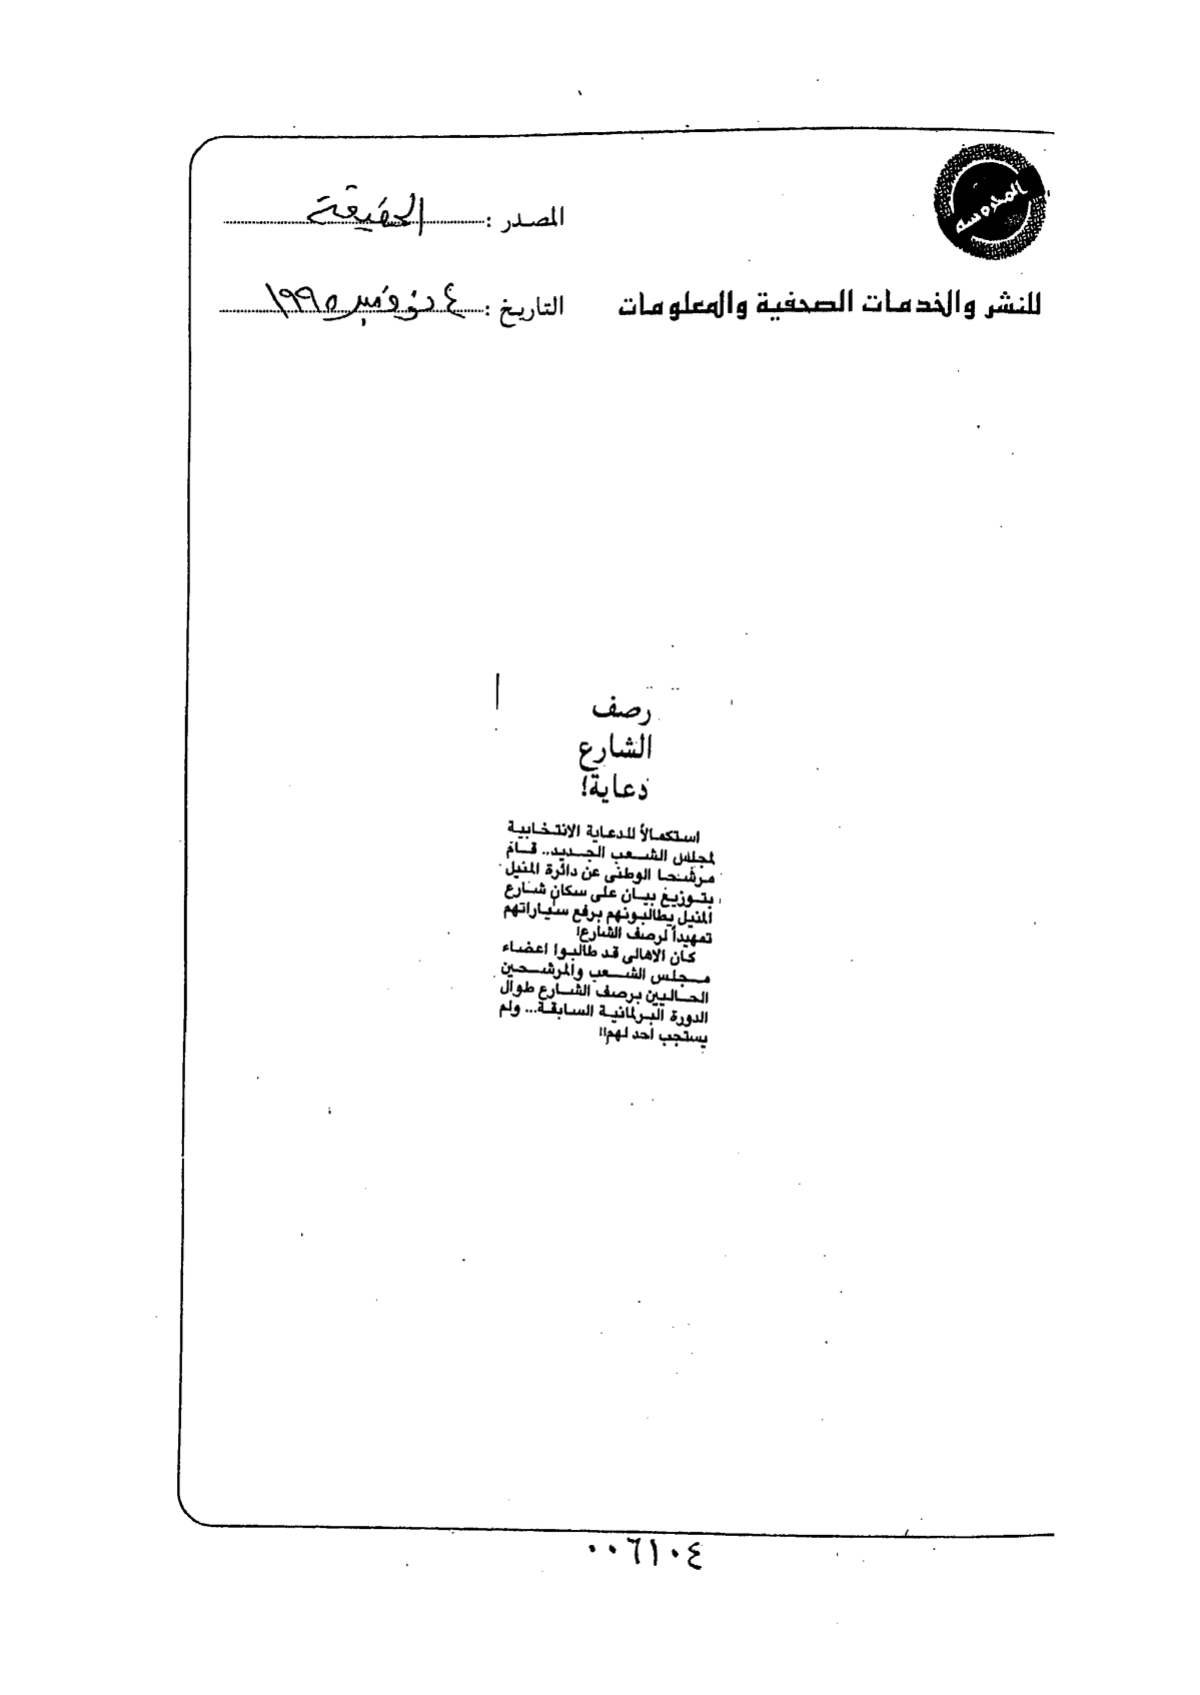 المحروسة
المصدر : الحقيقة
للنشر والخدمات الصحفية والمعلومات
التاريخ : ٤ نوفمبر ١٩٩٥
رصف
الشارع
دعاية!
استكمالاً للدعاية الانتخابية
لمجلس الشعب الجديد.. قام
مرشحا الوطنى عن دائرة المنيل
بتوزيع بيان على سكان شارع
المنيل يطالبونهم برفع سياراتهم
تمهيداً لرصف الشارع!
كان الاهالى قد طالبوا اعضاء
مجلس الشعب والمرشحين
الحاليين برصف الشارع طوال
الدورة البرلمانية السابقة... ولم
يستجب احد لهم!!
٠٠٦١٠٤